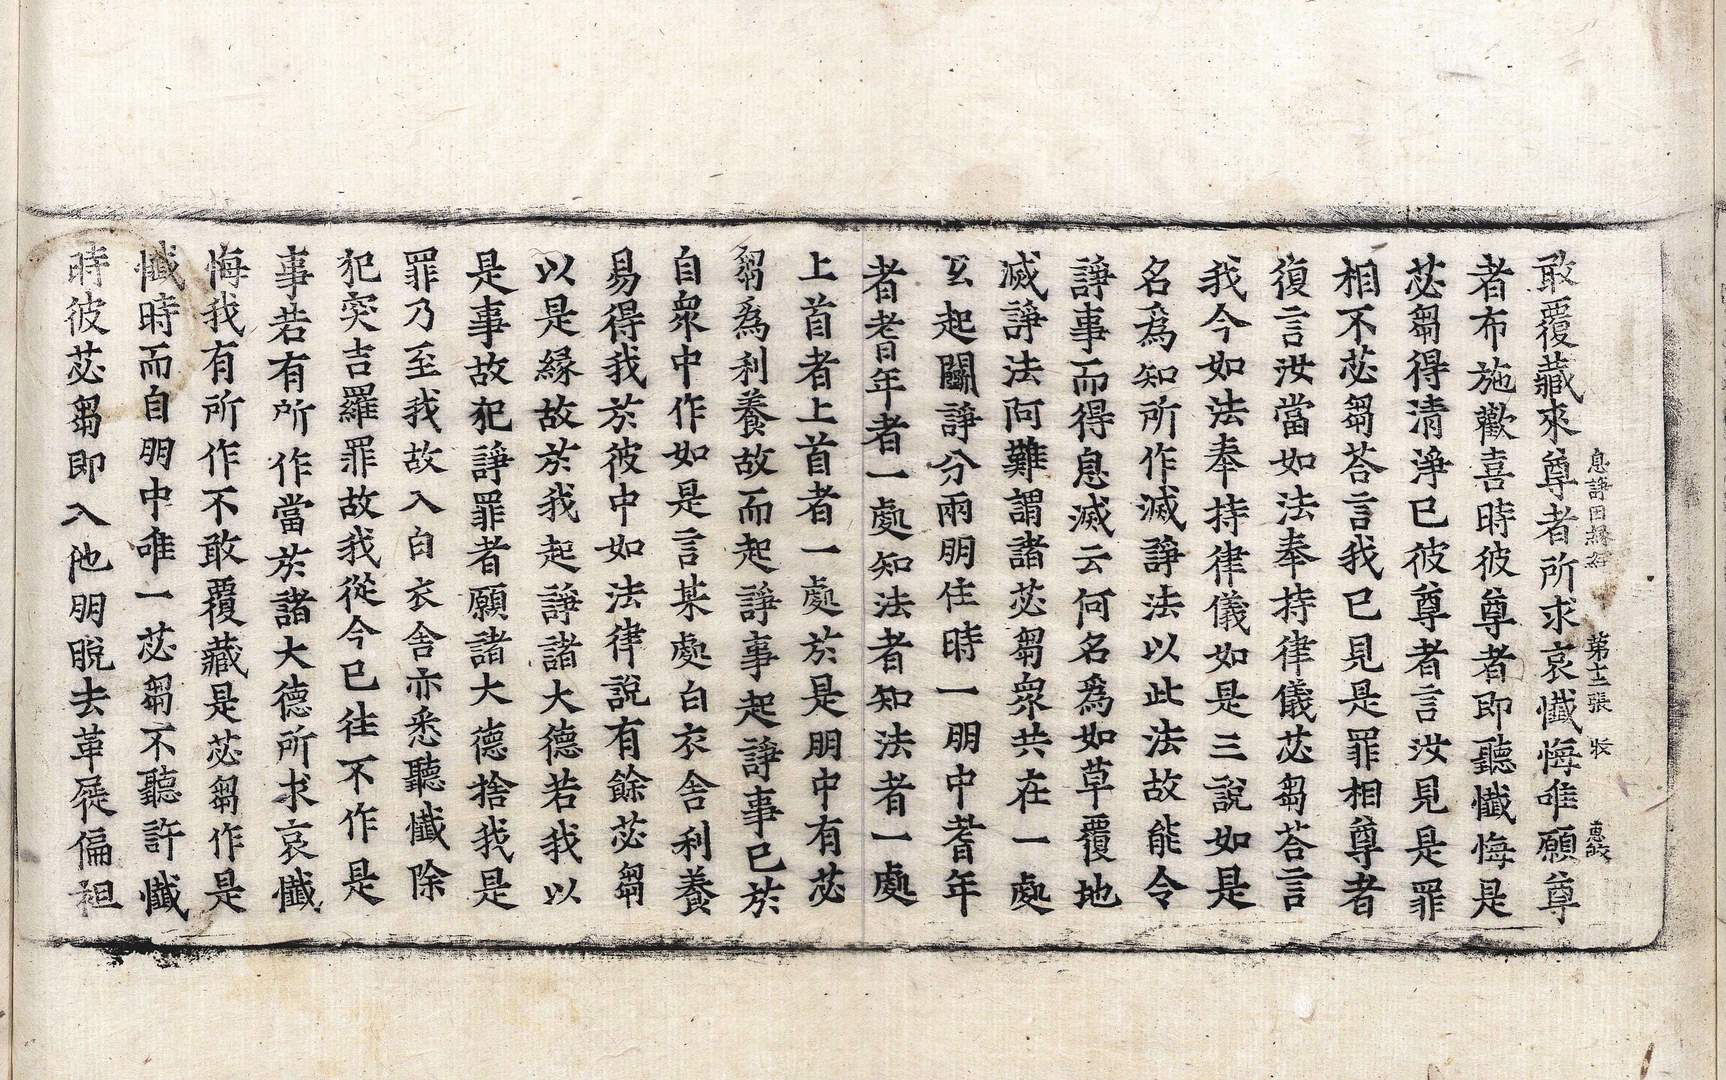 息諍因緣經 第十二張
敢覆藏來尊者所求哀懺悔唯願尊
者布施歡喜時彼尊者即聽懺悔是
苾芻得清淨已彼尊者言汝見是罪
相不苾芻荅言我已見是罪相尊者
復言汝當如法奉持律儀苾芻荅言
我今如法奉持律儀如是三說如是
名爲知所作滅諍法以此法故能令
諍事而得息滅云何名爲如草覆地
滅諍法阿難謂諸苾芻衆共在一處
互起鬭諍分兩朋住時一朋中耆年
者耆年者一處知法者知法者一處
上首者上首者一處於是朋中有苾
芻爲利養故而起諍事起諍事已於
自衆中作如是言某處白衣舍利養
易得我於彼中如法律說有餘苾芻
以是緣故於我起諍諸大德若我以
是事故犯諍罪者願諸大德捨我是
罪乃至我故入白衣舍亦悉聽懺除
犯突吉羅罪故我從今已往不作是
事若有所作當於諸大德所求哀懺
悔我有所作不敢覆藏是苾芻作是
懺時而自朋中唯一苾芻不聽許懺
時彼苾芻即入他朋脫去革屣偏袒